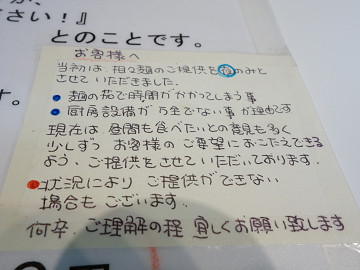 が、
さい！』
とのことです。
す。
お客様へ
当初は、担々麺のご提供を夜のみと
させていただきました。
● 麺の茹で時間がかかってしまう事
● 厨房設備が万全でない事が理由です
現在は、昼間も食べたいとの意見も多く
少しずつお客様のご要望におこたえできる
よう、ご提供をさせていただいております。
● 状況によりご提供ができない
場合もございます。
何卒、ご理解の程 宜しくお願い致します